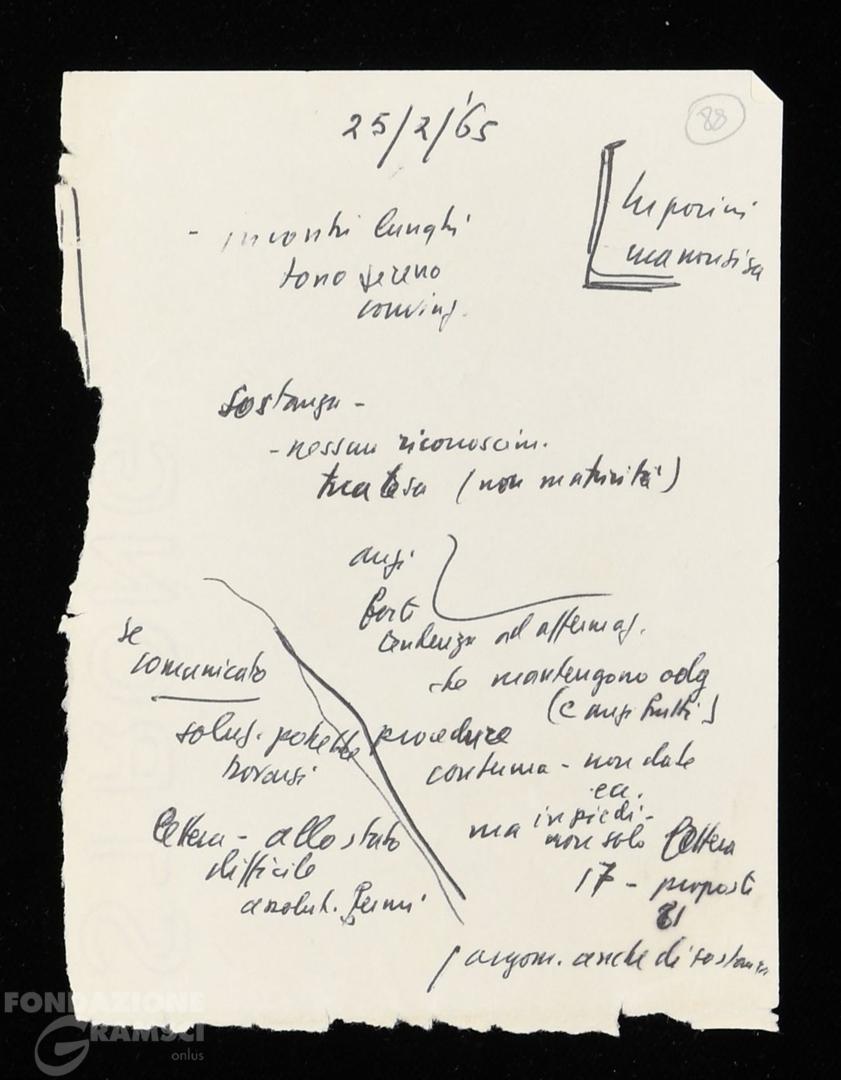 25/2/'65
88
Luporini
ma non si sa
- incontri lunghi
tono sereno
conving.
Sostanza -
- nessun riconoscim.
tua tesa (non maturità)
anzi
forte
tendenza ad affermaz.
che mantengono odg
(e anzi tutti)
se
comunicato
soluz. potrebbe
trovarsi
procedure
continua - non date
ecc.
ma in piedi -
non solo lettera
17 - proposte
81
lettera - allo stato
difficile
assolut. fermi
argom. anche di sostanza
FONDAZIONE
GRAMSCI
onlus